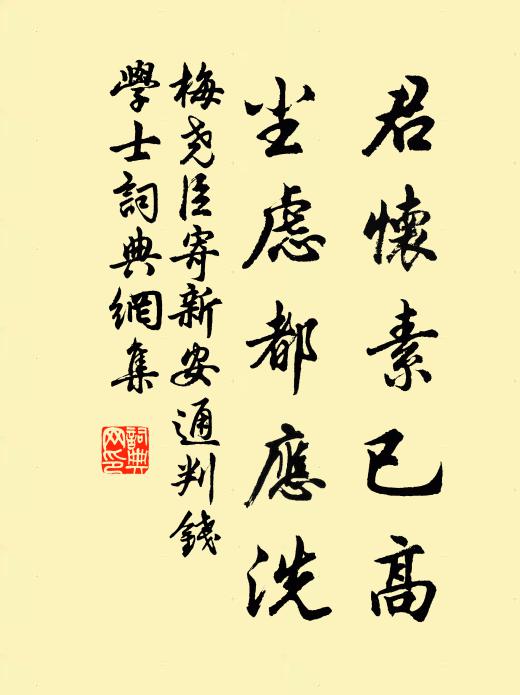 君懷素已高
尘慮都應洗
梅堯臣寄新安通判錢
學士詞典網集
詞典
网印